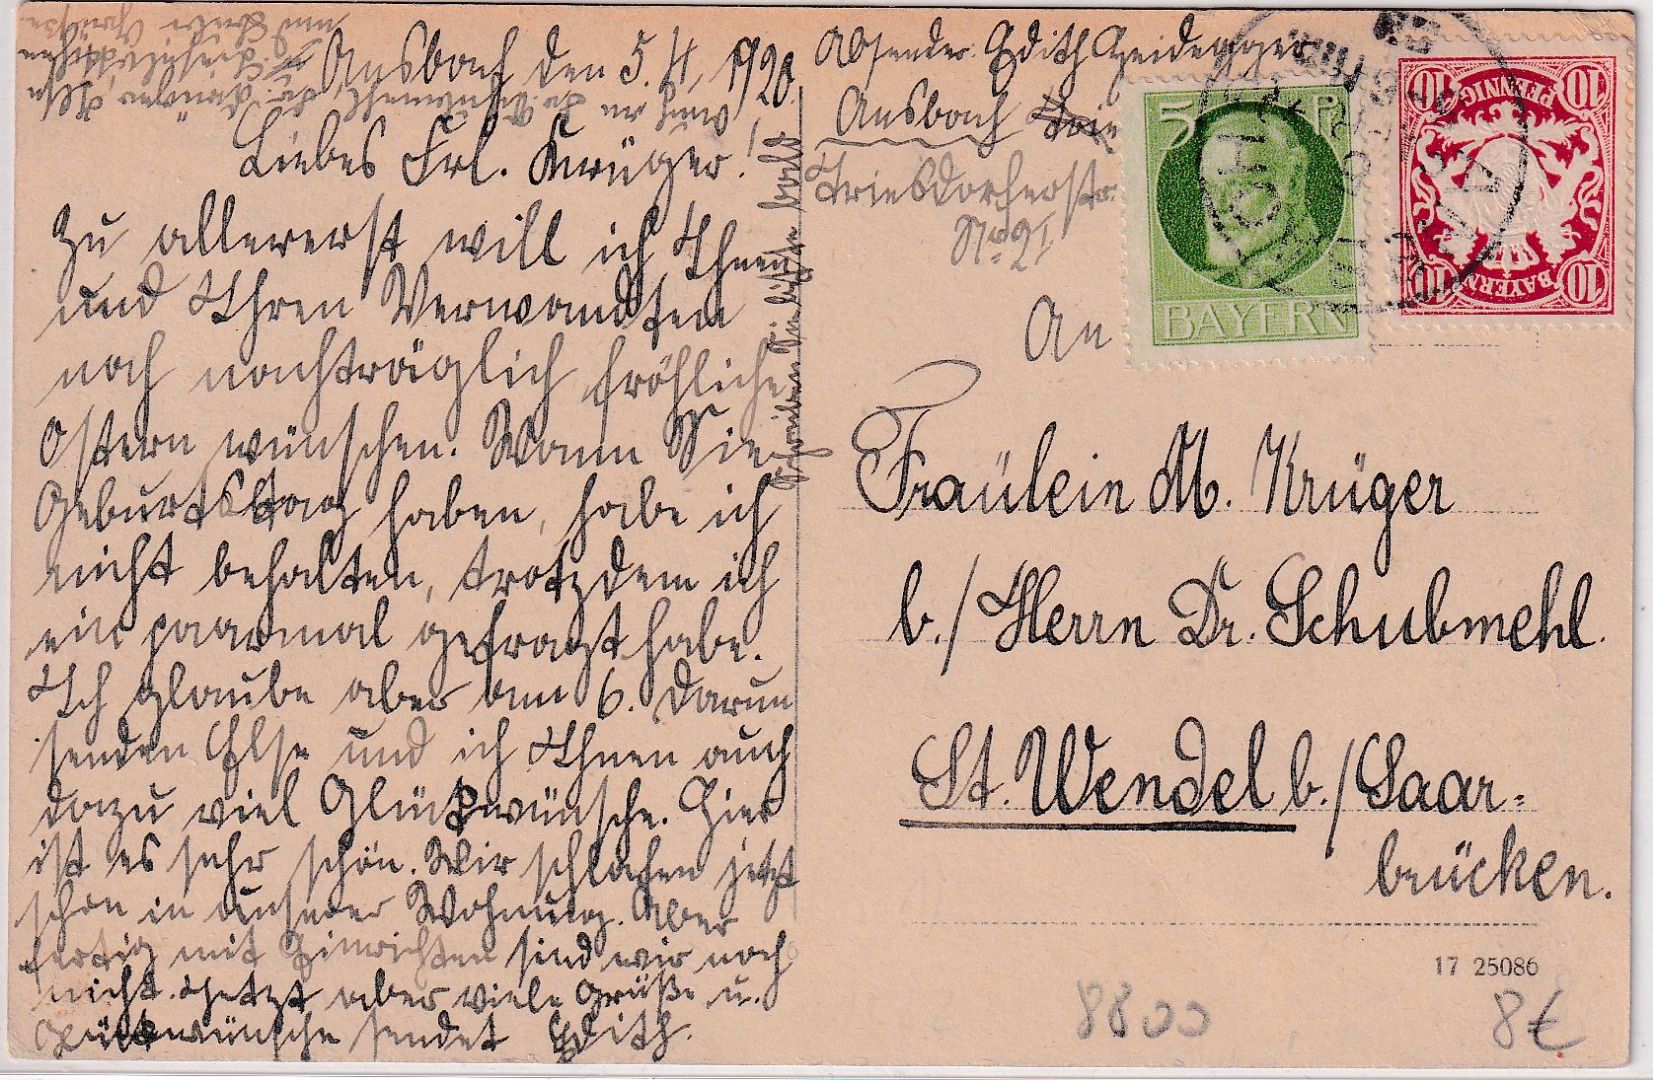 Ansbach den 5. 4. 1920.
Liebes Frl. Krüger!
Zu allererst will ich Ihnen
und Ihren Verwandten
noch nachträglich fröhliche
Ostern wünschen. Wann Sie
Geburtstag haben, habe ich
nicht behalten, trotzdem ich
ein paarmal gefragt habe.
Ich glaube aber am 6. Darum
senden Else und ich Ihnen auch
dazu viel Glückwünsche. Hier
ist es sehr schön. Wir schlafen jetzt
schon in unserer Wohnung. Aber
fertig mit Einrichten sind wir noch
nicht. Jetzt aber viele Grüße u.
Glückwünsche sendet Edith.
Schreiben Sie bitte bald
Absender: Edith Heidegger
Ansbach
Triesdorferstr.
No 21
An
Fräulein M. Krüger
b./Herrn Dr. Schubmehl.
St. Wendel b./Saar-
brücken.
5 P
BAYERN
10 10
PFENNIG
BAYERN
10 10
17 25086
8800
8€